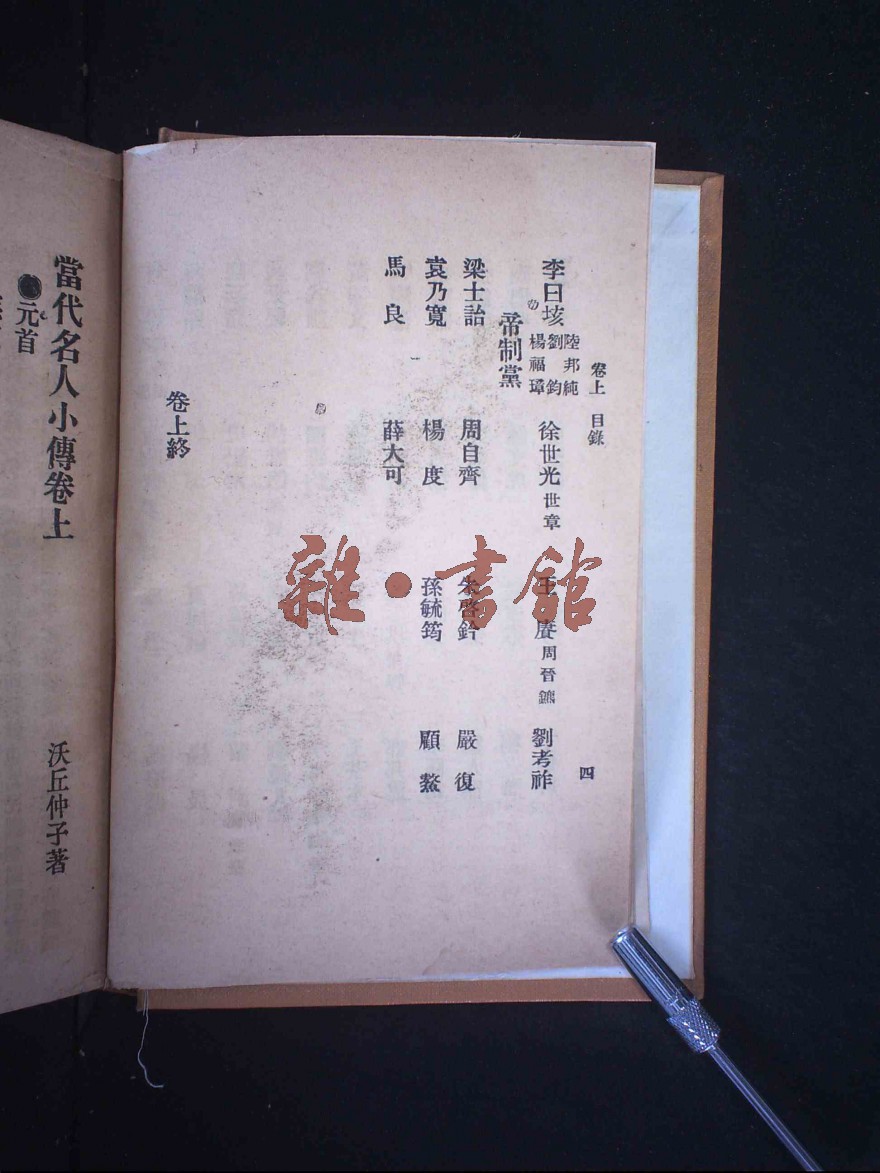 卷上 目錄 四
李曰垓 陸邦純 劉鈞 楊福璋 徐世光 世章 王賡 周晉鑣 劉考祚
帝制黨
梁士詒 周自齊 朱啓鈐 嚴復
袁乃寬 楊度 孫毓筠 顧鰲
馬良 薛大可
卷上終
當代名人小傳卷上
沃丘仲子著
●元首
雜·書館